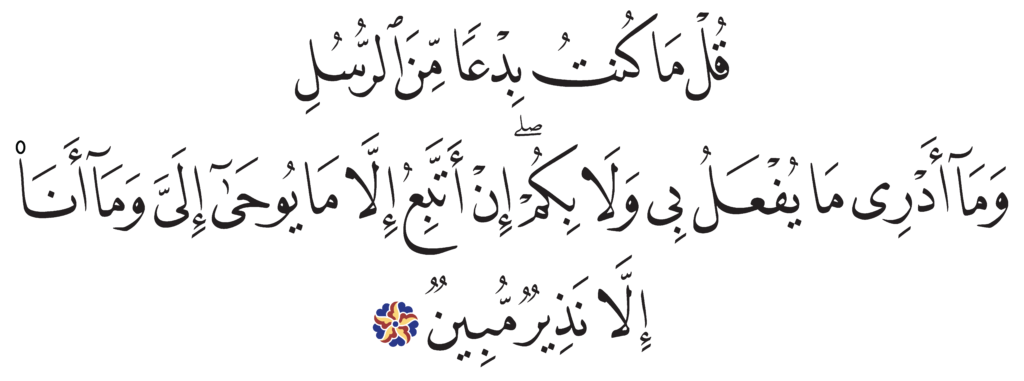 قُلْ مَا كُنتُ بِدْعًا مِّنَ ٱلرُّسُلِ
وَمَآ أَدْرِى مَا يُفْعَلُ بِى وَلَا بِكُمْ ۖ إِنْ أَتَّبِعُ إِلَّا مَا يُوحَىٰٓ إِلَىَّ وَمَآ أَنَا۠
إِلَّا نَذِيرٌ مُّبِينٌ